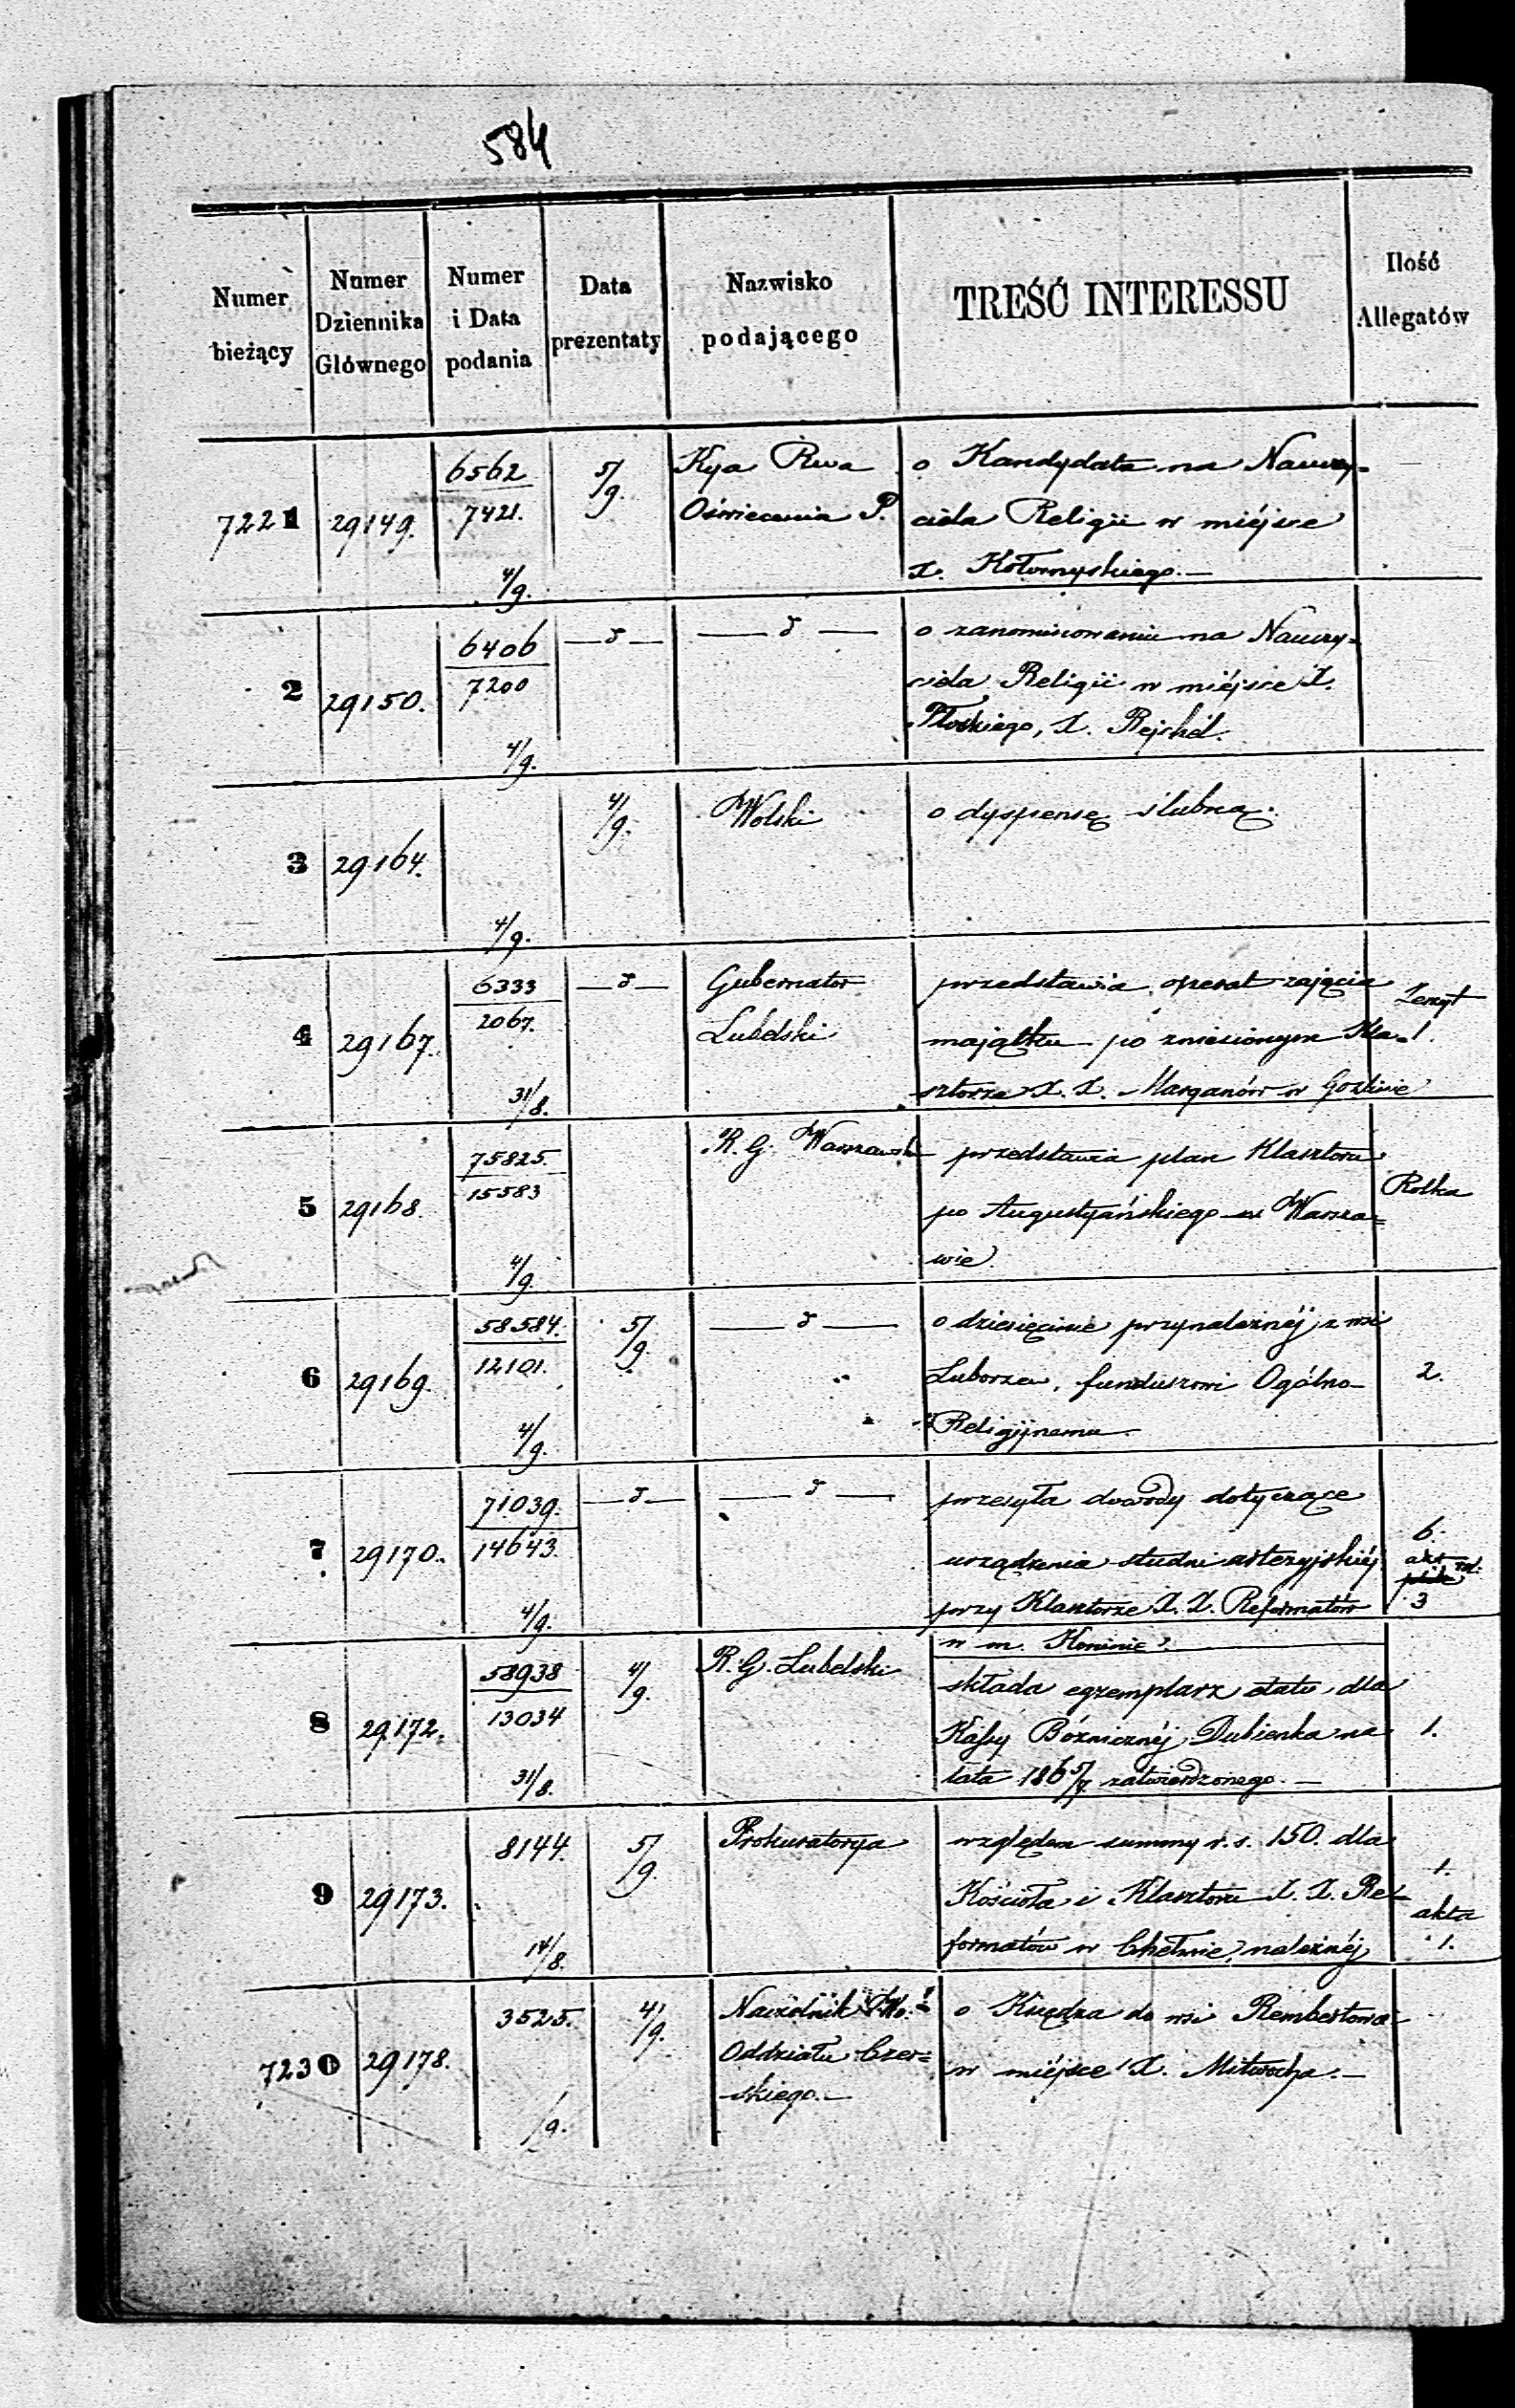 584
Numer bieżący
Numer Dziennika Głównego
Numer i Data podania
Data prezentaty
Nazwisko podającego
TREŚĆ INTERESSU
Ilość Allegatów
7221 29149. 6562 5/9. Kya Rwa o Kandydata na Nauczy=
7421. Oświecenia P. ciela Religii w miéjsce
4/9. X. Kołomyskiego.—
2 29150. 6406 —d— —d— o zanominowanie na Nauczy=
7200 ciela Religii w miéjsce X.
4/9. X. Rejchel.
3 29164. 4/9. Wolski o dyspensę ślubną.
4/9.
4 29167. 6333 —d— Gubernator przedstawia operat zajęcia Zeszyt
2067. Lubelski majątku po zniesionym Kla= 1.
31/8. sztorze X. X. Maryanów w Goźlinie
5 29168. 75825. R. G. Warszawski przedstawia plan Klasztoru
15583 po Augustyańskiego w Warsza= Rolka
4/9. wie.
6 29169. 58584. 5/9. —d— o dziesięcinie przynależnéj z wsi
12101. Luborzew, funduszowi Ogólno- 2.
4/9. Religijnemu.
7 29170. 71039. —d— —d— przesyła dowody dotyczące
14643. urządzenia studni artezyjskiéj 6.
4/9. przy Klasztorze X. X. Reformatów 3
w m. Koninie.
8 29172. 58938 4/9. R. G. Lubelski składa egzemplarz etatu dla
13034 Kassy Bóżnicznéj Dubienka na 1.
31/8. lata 1865/7. zatwierdzonego.—
9 29173. 8144. 5/9. Prokuratorya względem summy r. s. 150. dla 1.
Kościoła i Klasztoru X. X. Re= akta
14/8. formatów w Chełmie, należnéj 1.
7230 29178. 3525. 4/9. Naczelnik Wo. o Księdza do wsi Rembertowa
Oddziału Czer= w miéjsce X. Mitwocha.—
/9. skiego.—